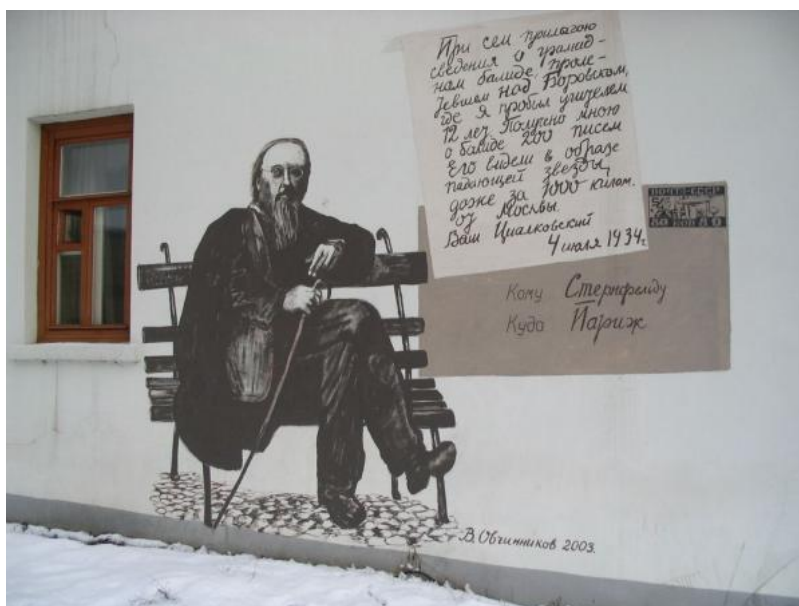 При сем прилагаю
сведения о громад-
ном болиде, проле-
тевшем над Боровском,
где я пробыл учителем
12 лет. Получено мною
о болиде 200 писем
Его видели в образе
падающей звезды,
даже за 1000 килом.
от Москвы.
Ваш Циолковский
4 июля 1934г.
ПОЧТА СССР
50 КОП 50
Кому Стернфельду
Куда Париж
В. Овчинников 2003.